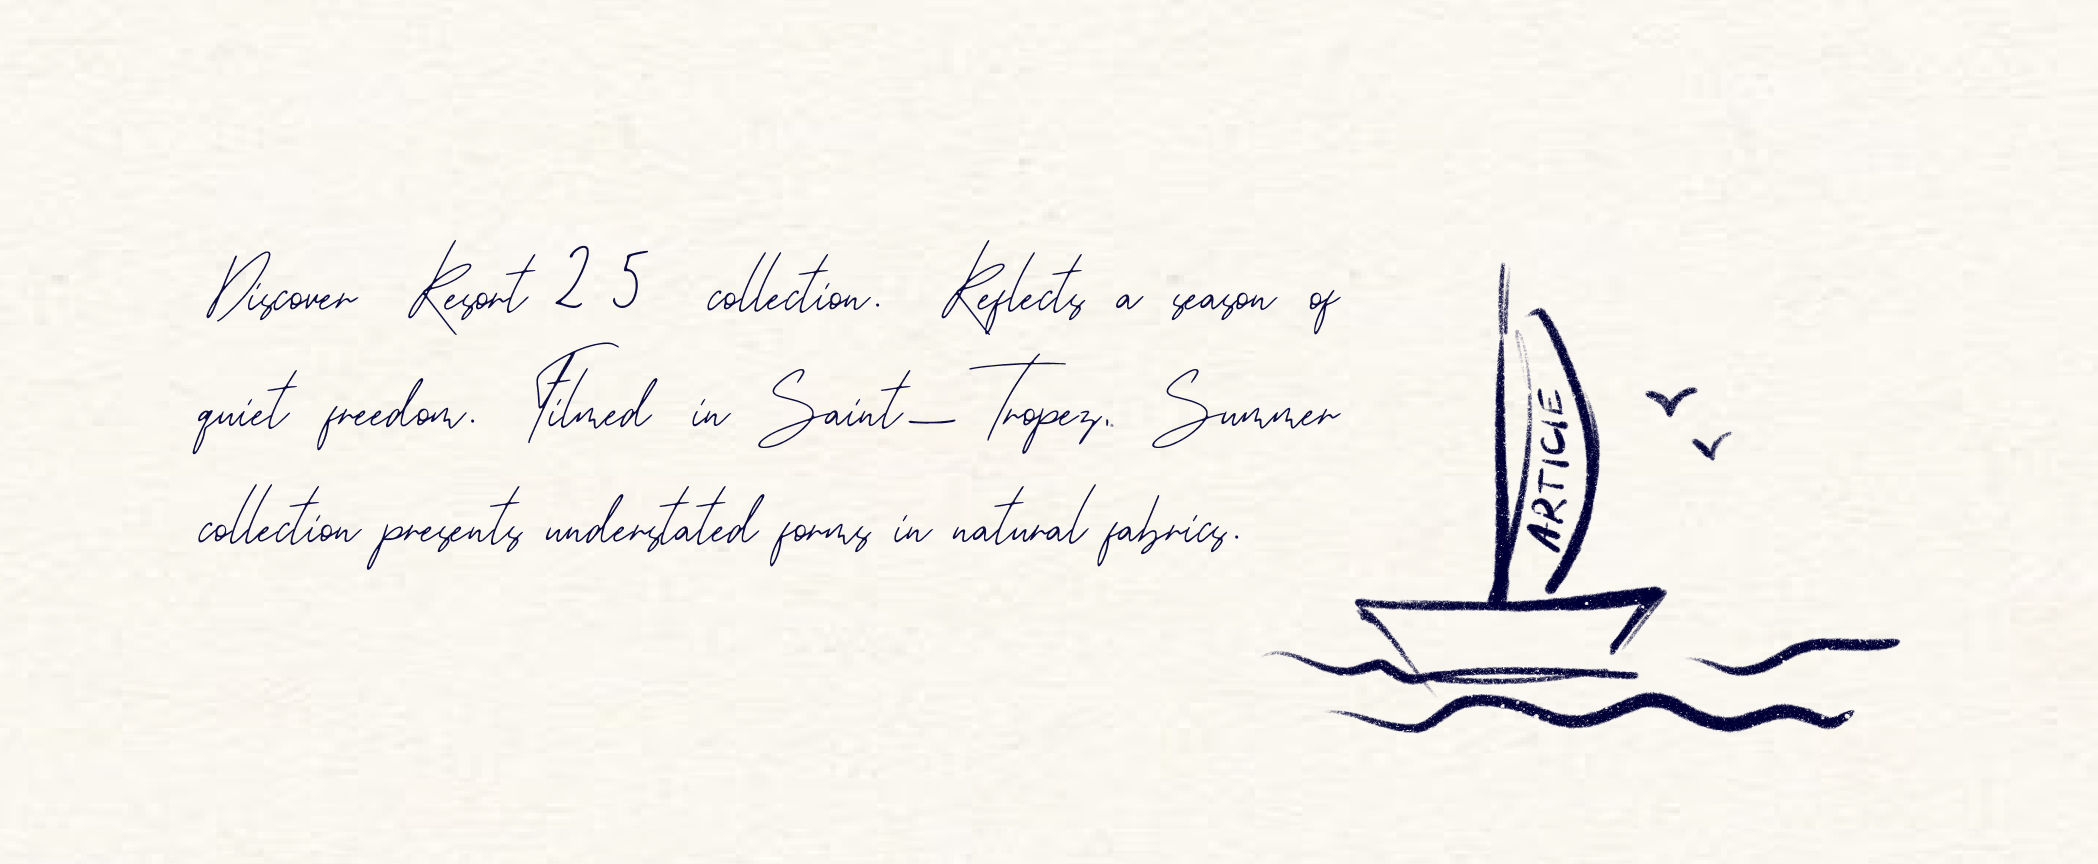 Discover Resort 25 collection. Reflects a season of
quiet freedom. Filmed in Saint-Tropez. Summer
collection presents understated forms in natural fabrics.
ARTICLE